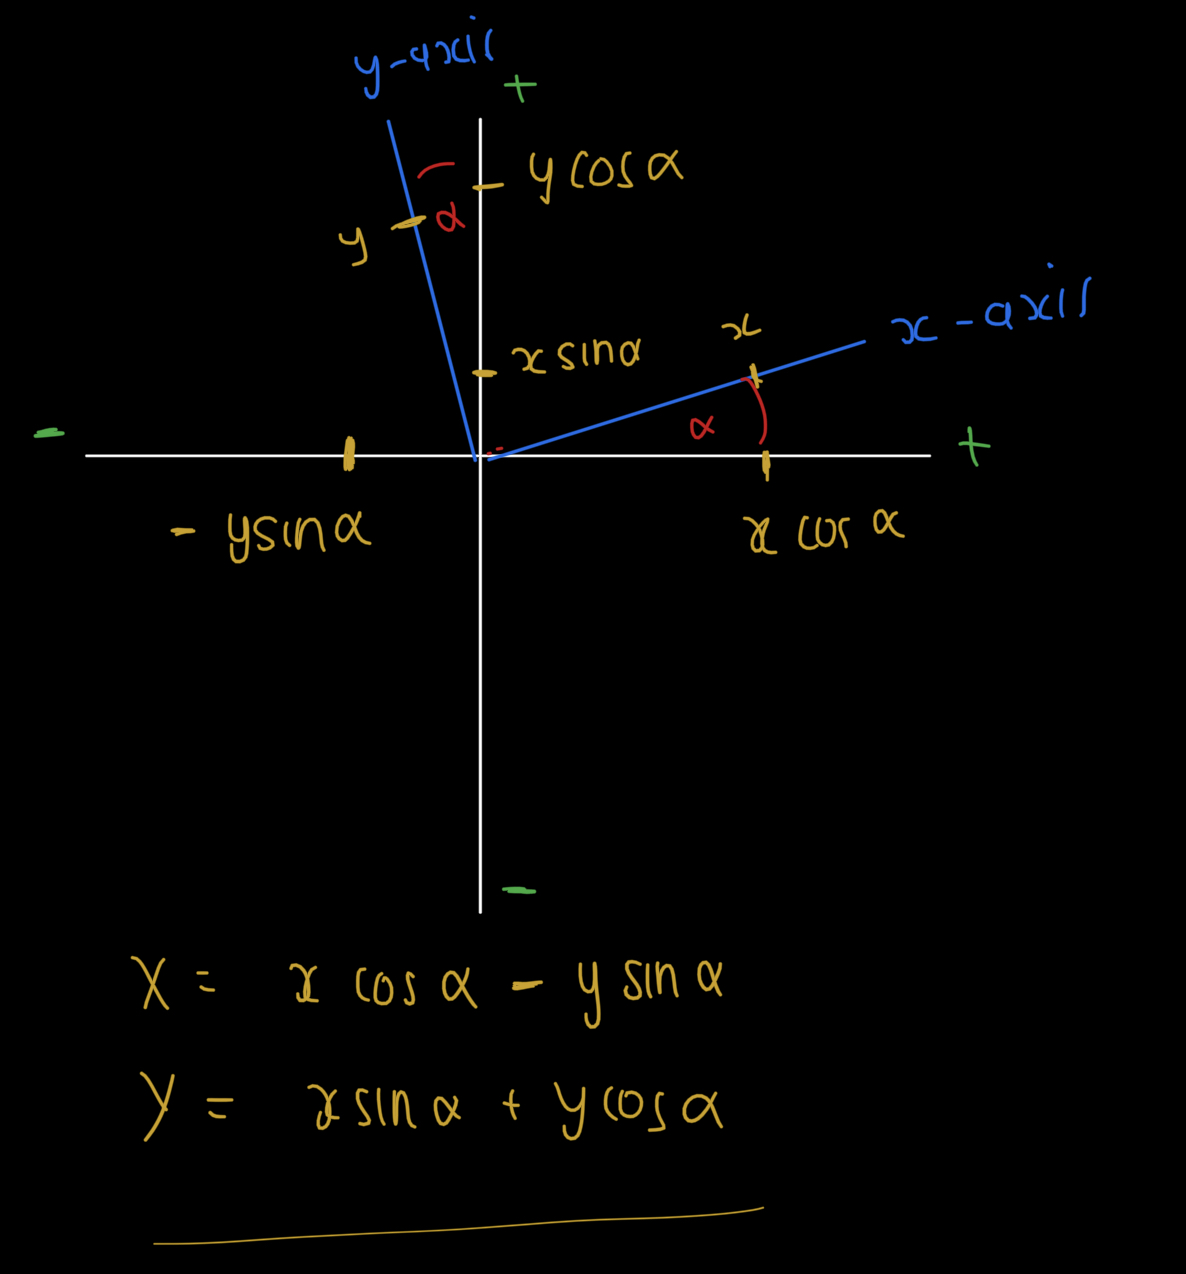 y-axis
+
y cos α
α
y
x-axis
x
x sin α
α
-
+
- y sin α
x cos α
-
X = x cos α - y sin α
Y = x sin α + y cos α